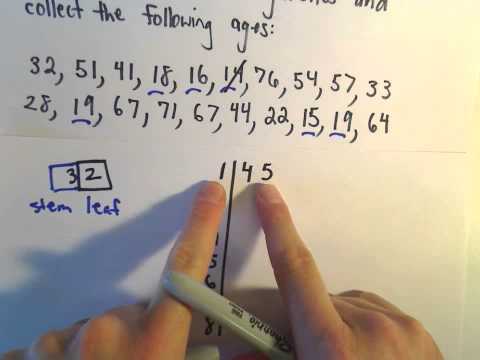 collect the following ages:
32, 51, 41, 18, 16, 14, 76, 54, 57, 33
28, 19, 67, 71, 67, 44, 22, 15, 19, 64
32 1 4 5
stem leaf
5
6
8